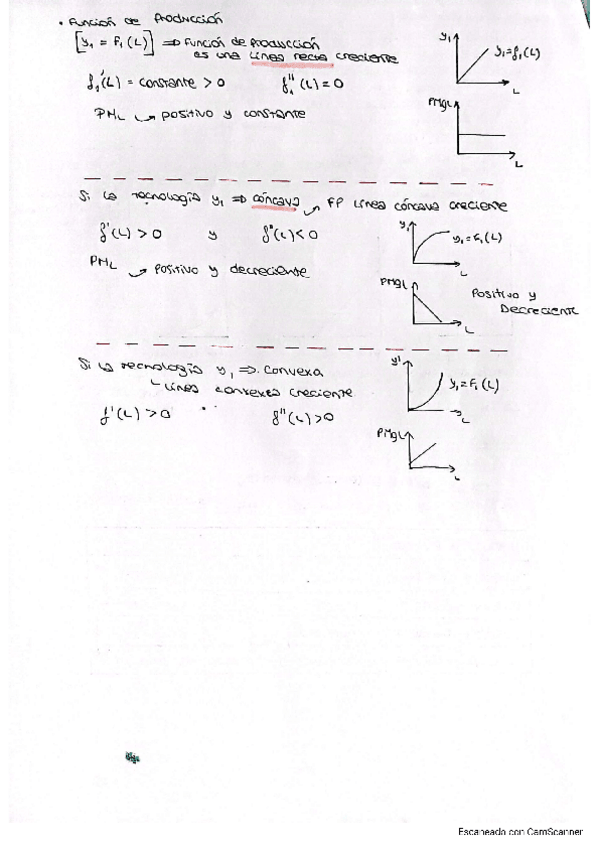 • Función de Producción
[y₁ = F₁(L)] ⇒ Función de Producción
es una línea recta creciente
f₁'(L) = constante > 0 f₁''(L) = 0
PML ↪ positivo y constante
y₁
y₁=f₁(L)
L
PMgL
L
Si la tecnología y₁ ⇒ cóncava ↪ FP línea cóncava creciente
f'(L) > 0 y f''(L) < 0
PML ↪ positivo y decreciente
y₁
y₁=F₁(L)
L
PMgL
L
Positivo y
Decreciente
Si la tecnología y₁ ⇒ convexa
↳ línea convexa creciente
f'(L) > 0 f''(L) > 0
y'
y₁=F₁(L)
L
PMgL
L
Escaneado con CamScanner